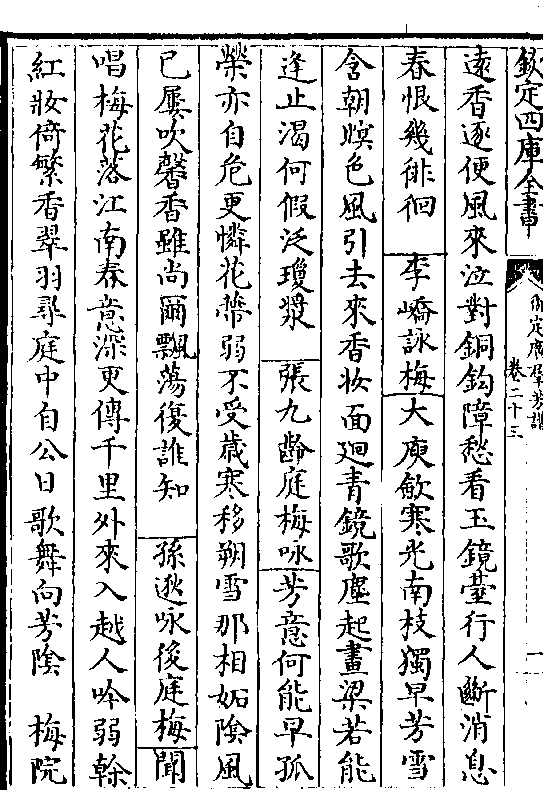 欽定四庫全書
御定廣羣芳譜
卷二十三
一
遠香逐便風來泣對銅鈎障愁看玉鏡臺行人斷消息
春恨幾徘徊 李嶠詠梅 大庾斂寒光南枝獨早芳雪
含朝暝色風引去來香妝面廻青鏡歌塵起畫梁若能
逢止渴何假泛瓊漿 張九齡庭梅咏 芳意何能早孤
榮亦自危更憐花蒂弱不受歳寒移朔雪那相妬陰風
已屢吹馨香雖尚爾飄蕩復誰知 孫逖咏後庭梅 聞
唱梅花落江南春意深更傳千里外來入越人吟弱榦
紅妝倚繁香翠羽尋庭中自公日歌舞向芳陰 梅院